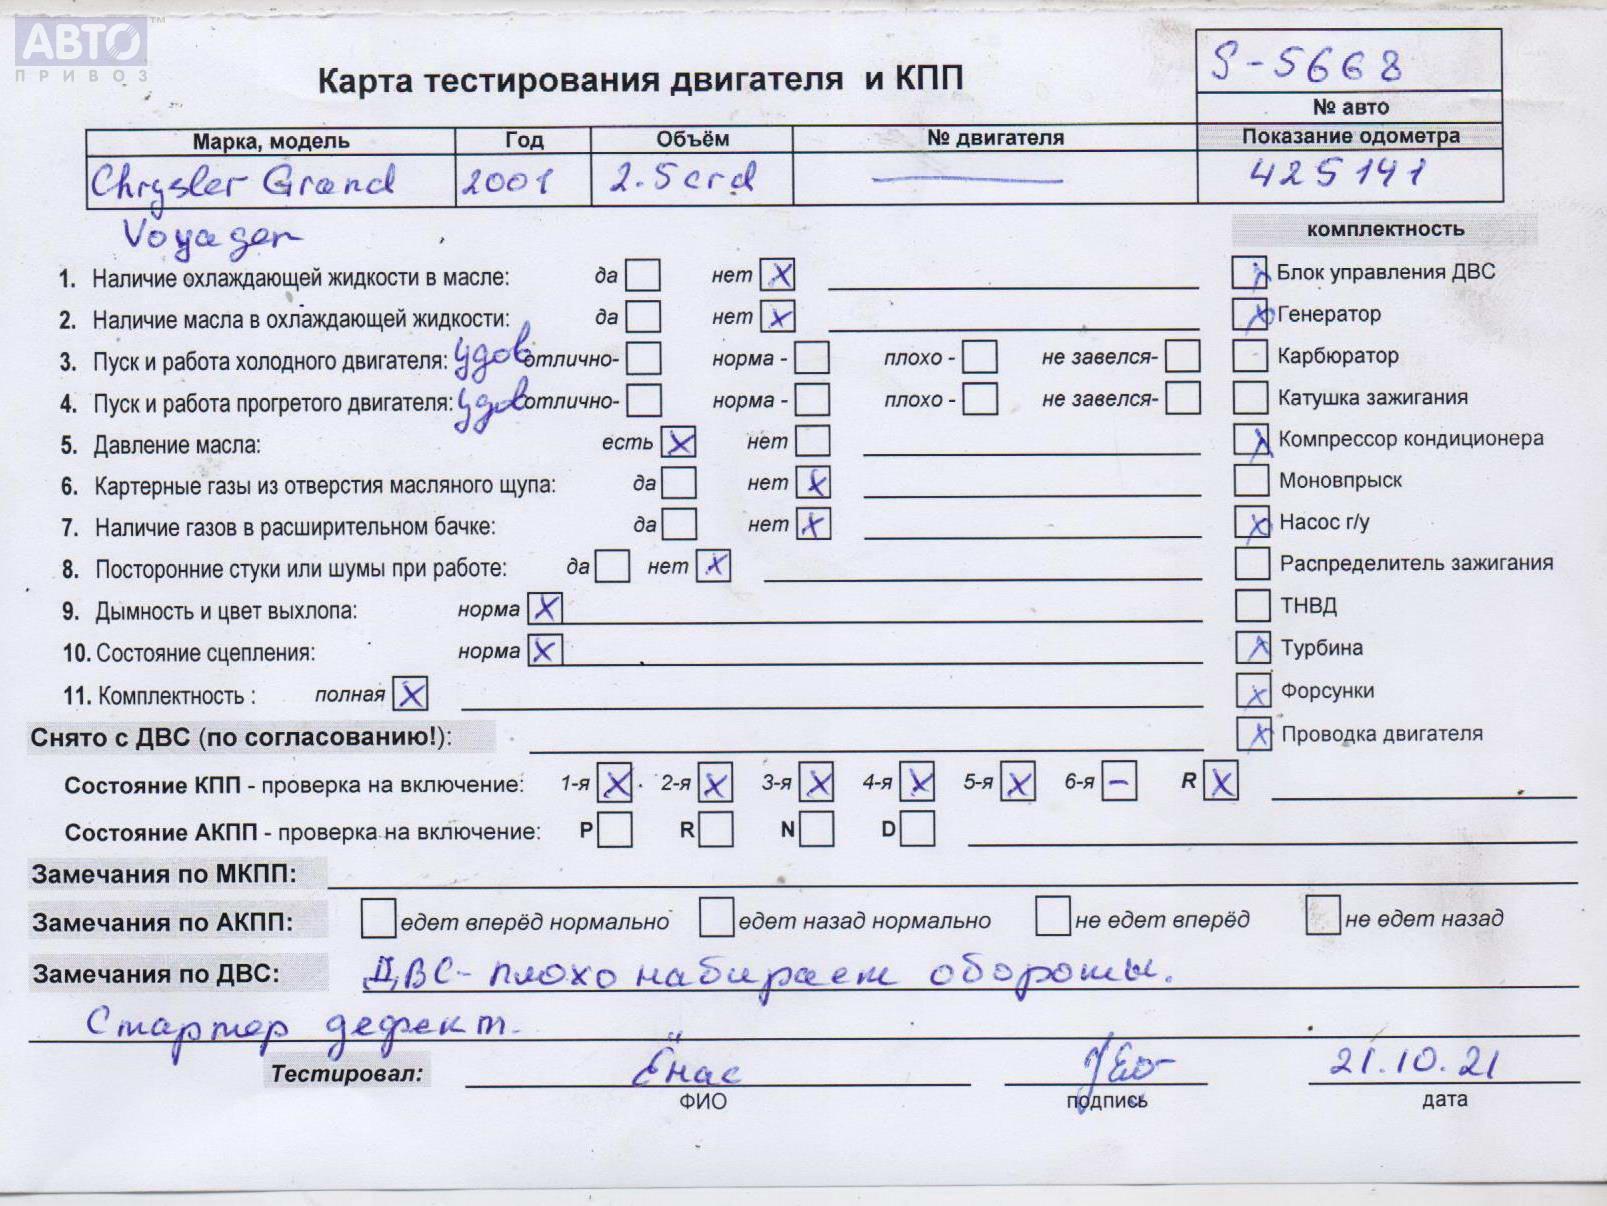 АВТО™
ПРИВОЗ
Карта тестирования двигателя и КПП
S-5668
№ авто
Марка, модель Год Объём № двигателя Показание одометра
Chrysler Grand 2001 2.5 crd — 425141
Voyager
комплектность
1. Наличие охлаждающей жидкости в масле: да нет X
X Блок управления ДВС
2. Наличие масла в охлаждающей жидкости: да нет X
X Генератор
3. Пуск и работа холодного двигателя: удов отлично- норма - плохо - не завелся-
Карбюратор
4. Пуск и работа прогретого двигателя: удов отлично- норма - плохо - не завелся-
Катушка зажигания
5. Давление масла: есть X нет
X Компрессор кондиционера
6. Картерные газы из отверстия масляного щупа: да нет X
Моновпрыск
7. Наличие газов в расширительном бачке: да нет X
X Насос г/у
8. Посторонние стуки или шумы при работе: да нет X
Распределитель зажигания
9. Дымность и цвет выхлопа: норма X
ТНВД
10. Состояние сцепления: норма X
X Турбина
11. Комплектность : полная X
X Форсунки
Снято с ДВС (по согласованию!):
X Проводка двигателя
Состояние КПП - проверка на включение: 1-я X 2-я X 3-я X 4-я X 5-я X 6-я – R X
Состояние АКПП - проверка на включение: P R N D
Замечания по МКПП:
Замечания по АКПП: едет вперёд нормально едет назад нормально не едет вперёд не едет назад
Замечания по ДВС: ДВС - плохо набирает обороты.
Стартер дефект.
Тестировал: Ёнас 21.10.21
ФИО подпись дата